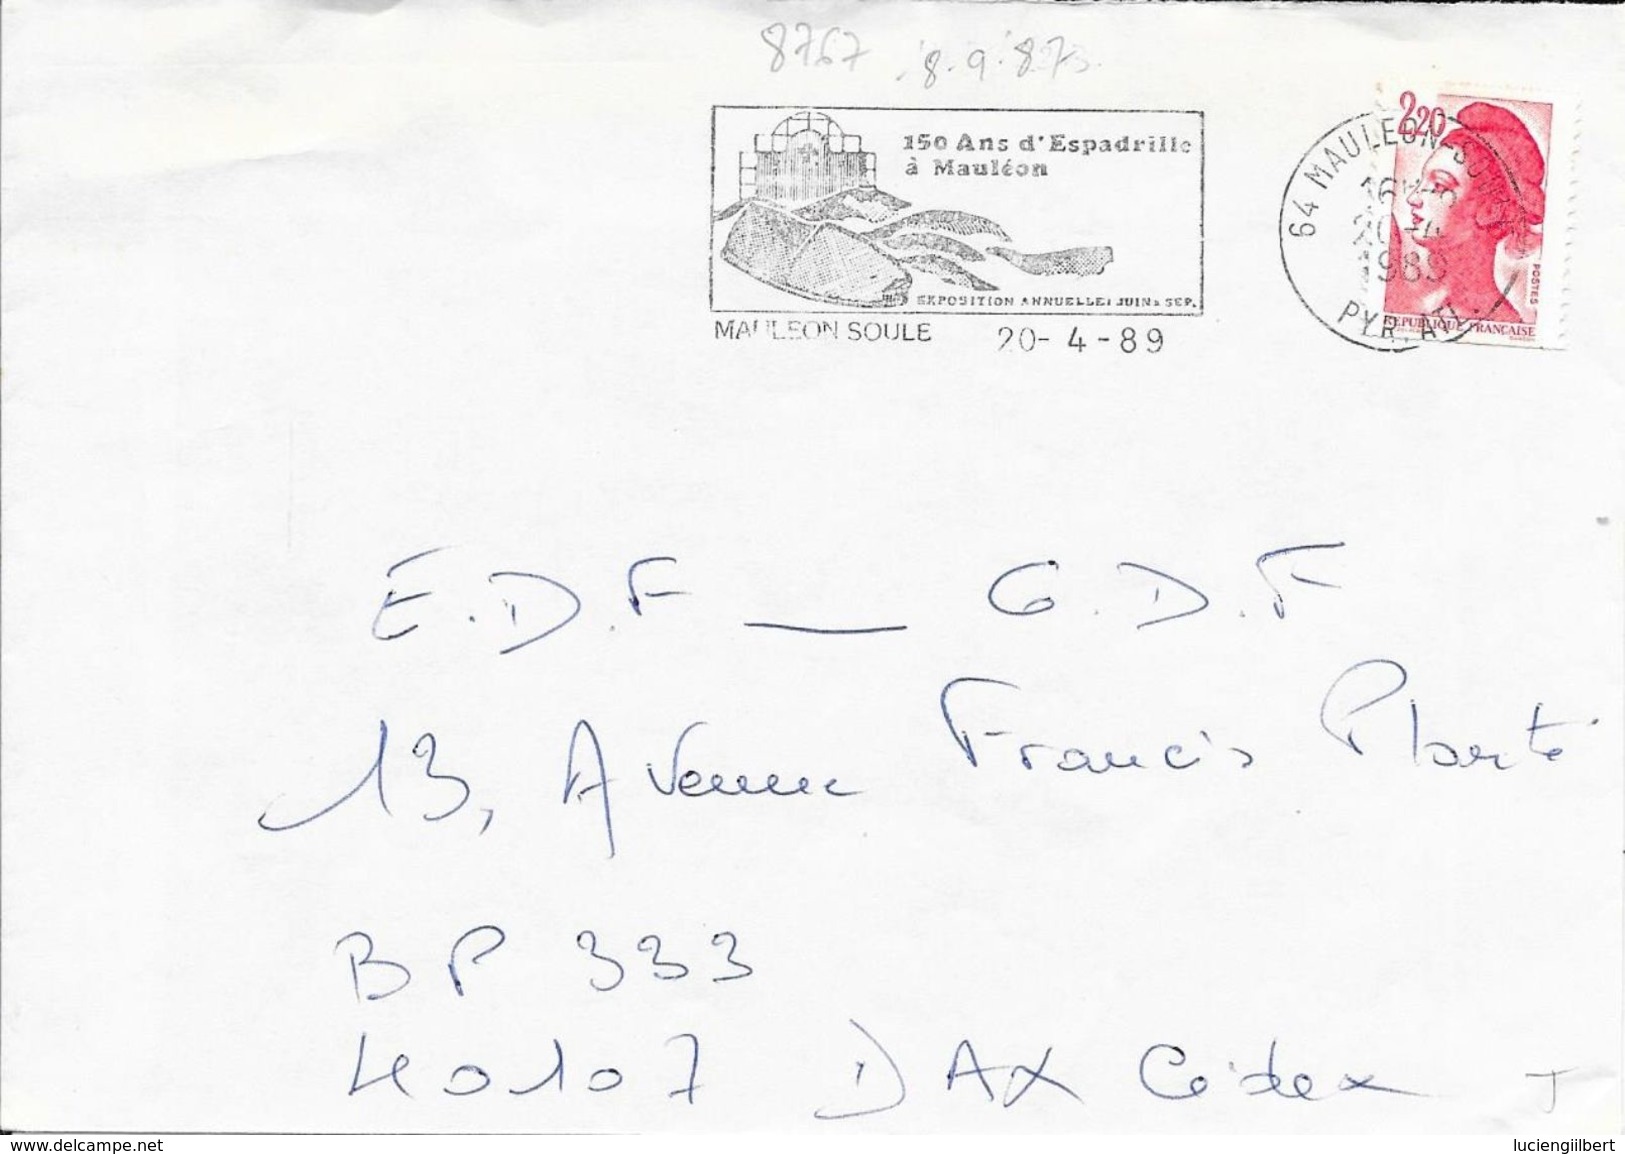 8767 8.9.873
150 Ans d'Espadrille
à Mauléon
EXPOSITION ANNUELLE: JUIN à SEP.
MAULEON SOULE 20-4-89
64 MAULEON-SOULE
20-4
1989
PYR. ATL.
2,20
POSTES
REPUBLIQUE FRANCAISE
E.D.F — G.D.F
13, Avenue Francis Planté
BP 333
40107 DAX Cédex
www.delcampe.net
luciengilbert